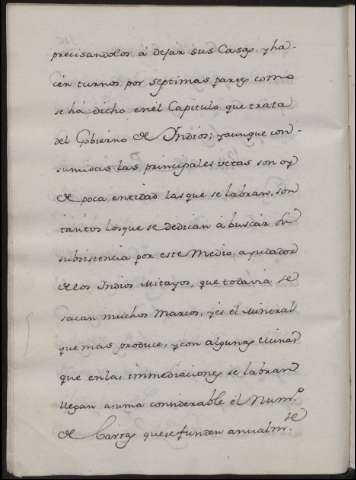 precisandolos á dejar sus Casas, y ha-
cer turnos por septimas partes como
se há dicho en él Capitulo, que trata
del Gobierno de Indios; y aunque con-
sumidas las principales vetas son oy
de poca entidad las que se labran, son
tantos los que se dedican á buscar su
subsistencia por este Medio, ayudados
de los Indios Mitayos, que todavia se
sacan muchos Marcos, y es el Mineral
que mas produce, y con algunas
que en las immediaciones se labran
llegan a suma considerable el Num.o
de Barras que se funden anualm.te